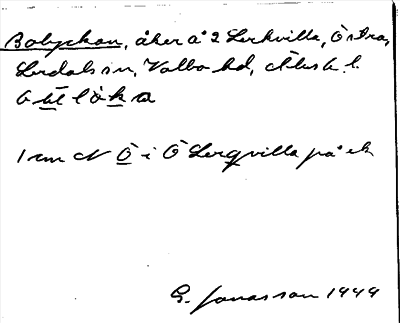 Bolyckan, åker å 2 Lerkvilla, Östra,
Lerdals sn, Valbo hd, Älvsb. l.
1 cm N Ö i Ö Lerqvilla på ek
E. Jonasson 1949